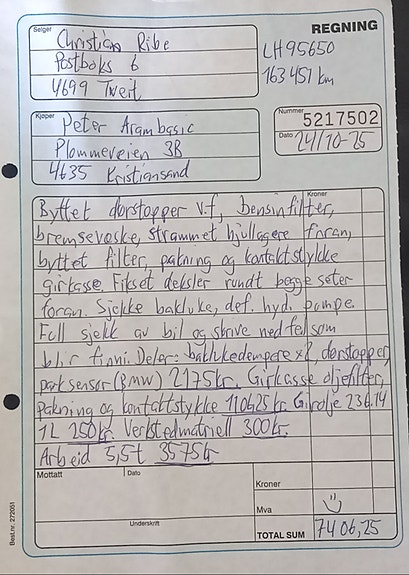 REGNING
Selger
Christian Ribe
Postboks 6
4699 Tveit
LH95650
163451 km
Kjøper
Peter Arambasic
Plommeveien 3B
4635 Kristiansand
Nummer
5217502
Dato 24/10-25
Kroner
Byttet dørstopper v.f, bensinfilter,
bremsevæske, strammet hjullagere foran,
byttet filter, pakning og kontaktstykke
girkasse. Fikset deksler rundt begge seter
foran. Sjekke bakluke, def. hyd. pumpe.
Full sjekk av bil og skrive ned feil som
blir finni. Deler: baklukedempere x2, dørstopper,
park sensor (BMW) 2175kr. Girkasse oljefilter,
pakning og kontaktstykke 1106,25 kr. Girolje 236.14
1L 250kr. Verkstedmatriell 300kr.
Arbeid 5,5t 3575kr
Mottatt
Dato
Kroner
Mva
Underskrift
TOTAL SUM 7406,25
Best.nr. 272051